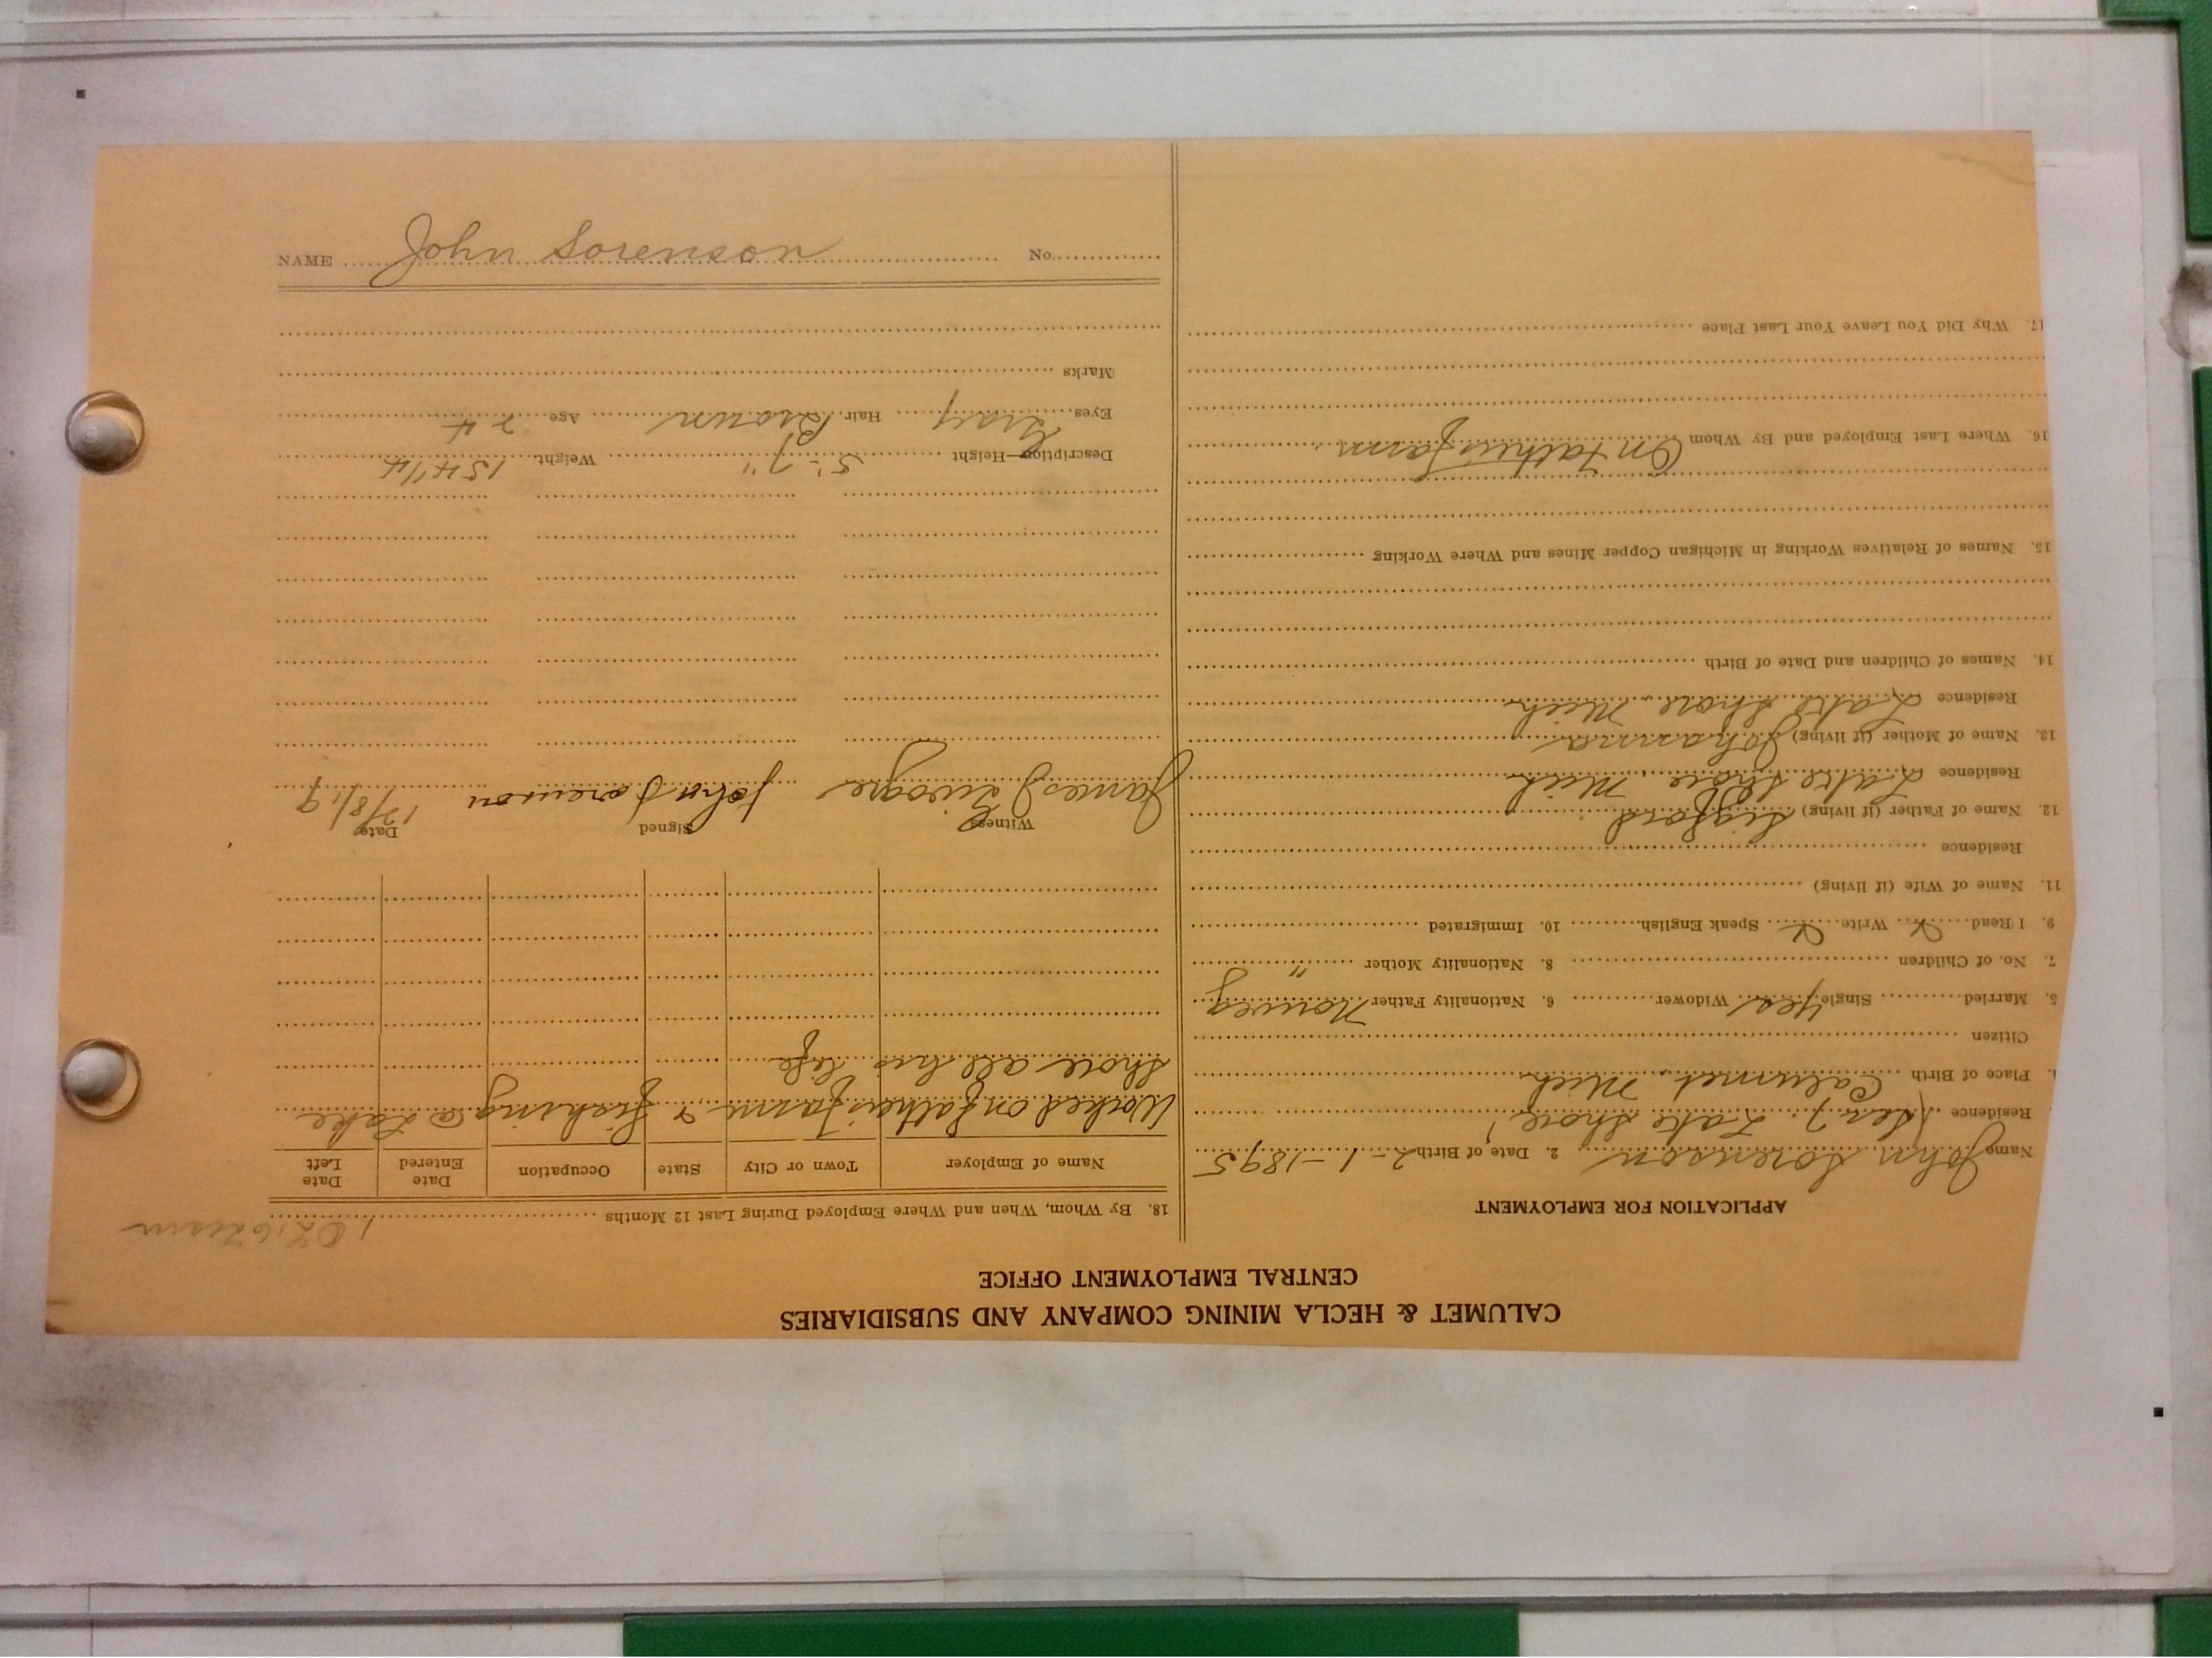 CALUMET & HECLA MINING COMPANY AND SUBSIDIARIES
CENTRAL EMPLOYMENT OFFICE
APPLICATION FOR EMPLOYMENT
Name John Sorenson 2. Date of Birth 2-1-1895
Residence (Sen), Lake Shore
Place of Birth Calumet, Mich
Citizen
5. Married Single Yes Widower 6. Nationality Father Norweg
7. No. of Children 8. Nationality Mother "
9. I Read Write Speak English 10. Immigrated
11. Name of Wife (if living)
Residence
12. Name of Father (if living) Sigford
Residence Lake Shore, Mich
13. Name of Mother (if living) Johanna
Residence Lake Shore, Mich
14. Names of Children and Date of Birth
15. Names of Relatives Working in Michigan Copper Mines and Where Working
16. Where Last Employed and By Whom On Fathers Farm
17. Why Did You Leave Your Last Place
18. By Whom, When and Where Employed During Last 12 Months
Name of Employer Town or City State Occupation Date Entered Date Left
Worked on fathers Farm & fishing @ Lake
Shore all his life
Witness Signed Date
James John Sorenson 12/8/19
Description—Height 5'-7" Weight 154 1/4
Eyes Gray Hair Brown Age 24
Marks
NAME John Sorenson No.